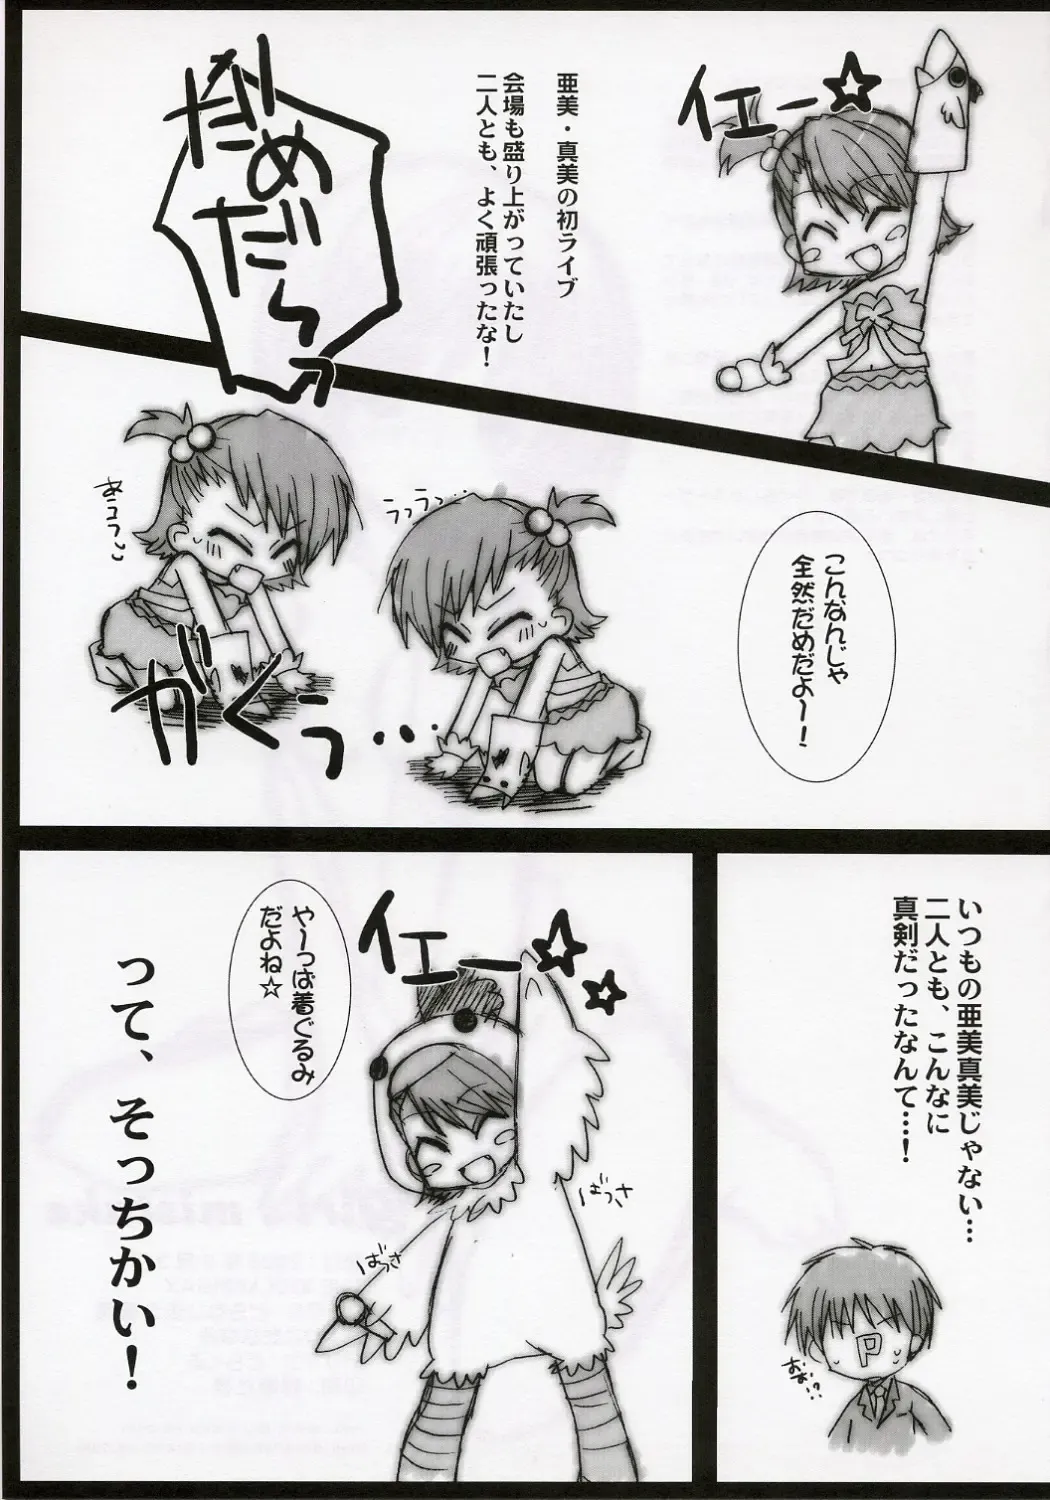 イエー☆
亜美・真美の初ライブ
会場も盛り上がっていたし
二人とも、よく頑張ったな！
だめ
だらっ
こんなんじゃ
全然だめだよ～！
うっうっ…
がくぅ…
いつもの亜美真美じゃない…
二人とも、こんなに
真剣だったなんて…！
P
おお!?
イエー☆☆
や～っぱ着ぐるみ
だよね☆
ばっさ
ばっさ
って、そっちかい！